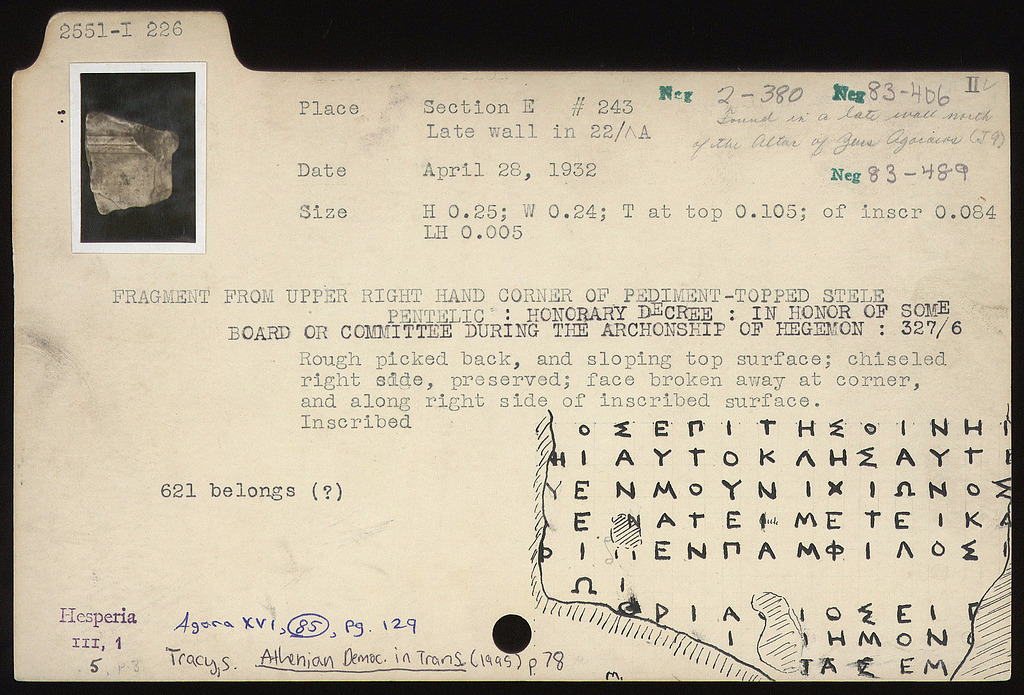 2551-I 226
II
Place Section E # 243 Neg 2-380 Neg 83-406
Late wall in 22/ΛA
Found in a late wall north
of the Altar of Zeus Agoraios (J9)
Date April 28, 1932 Neg 83-489
Size H 0.25; W 0.24; T at top 0.105; of inscr 0.084
LH 0.005
FRAGMENT FROM UPPER RIGHT HAND CORNER OF PEDIMENT-TOPPED STELE
PENTELIC : HONORARY DECREE : IN HONOR OF SOME
BOARD OR COMMITTEE DURING THE ARCHONSHIP OF HEGEMON : 327/6
Rough picked back, and sloping top surface; chiseled
right side, preserved; face broken away at corner,
and along right side of inscribed surface.
Inscribed
ΙΟΣΕΠΙΤΗΣΟΙΝΗΙ
ΗΙΑΥΤΟΚΛΗΣΑΥΤ
621 belongs (?)
ΥΕΝΜΟΥΝΙΧΙΩΝΟΣ
ΑΤΕΙ ΜΕΤΕΙΚΑ
ΕΝΠΑΜΦΙΛΟΣΙ
ΩΙ
ΡΙΑ ΙΟΣΕΙΓ
Ι ΙΗΜΟΝ
ΤΑΣΕΜ
Hesperia
III, 1
5 p.3
Agora XVI, 85, pg. 129
Tracy, S. Athenian Democ. in Trans. (1995) p. 78
M.